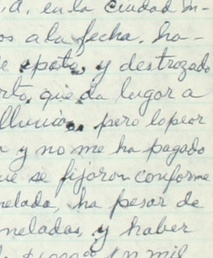 en la Ciudad
os a la fecha, ha-
y destrozado
que da lugar a
lluvia, pero lo peor
a y no me ha pagado
ue se fijaron conforme
nelada, ha pesar de
neladas, y haber
mil